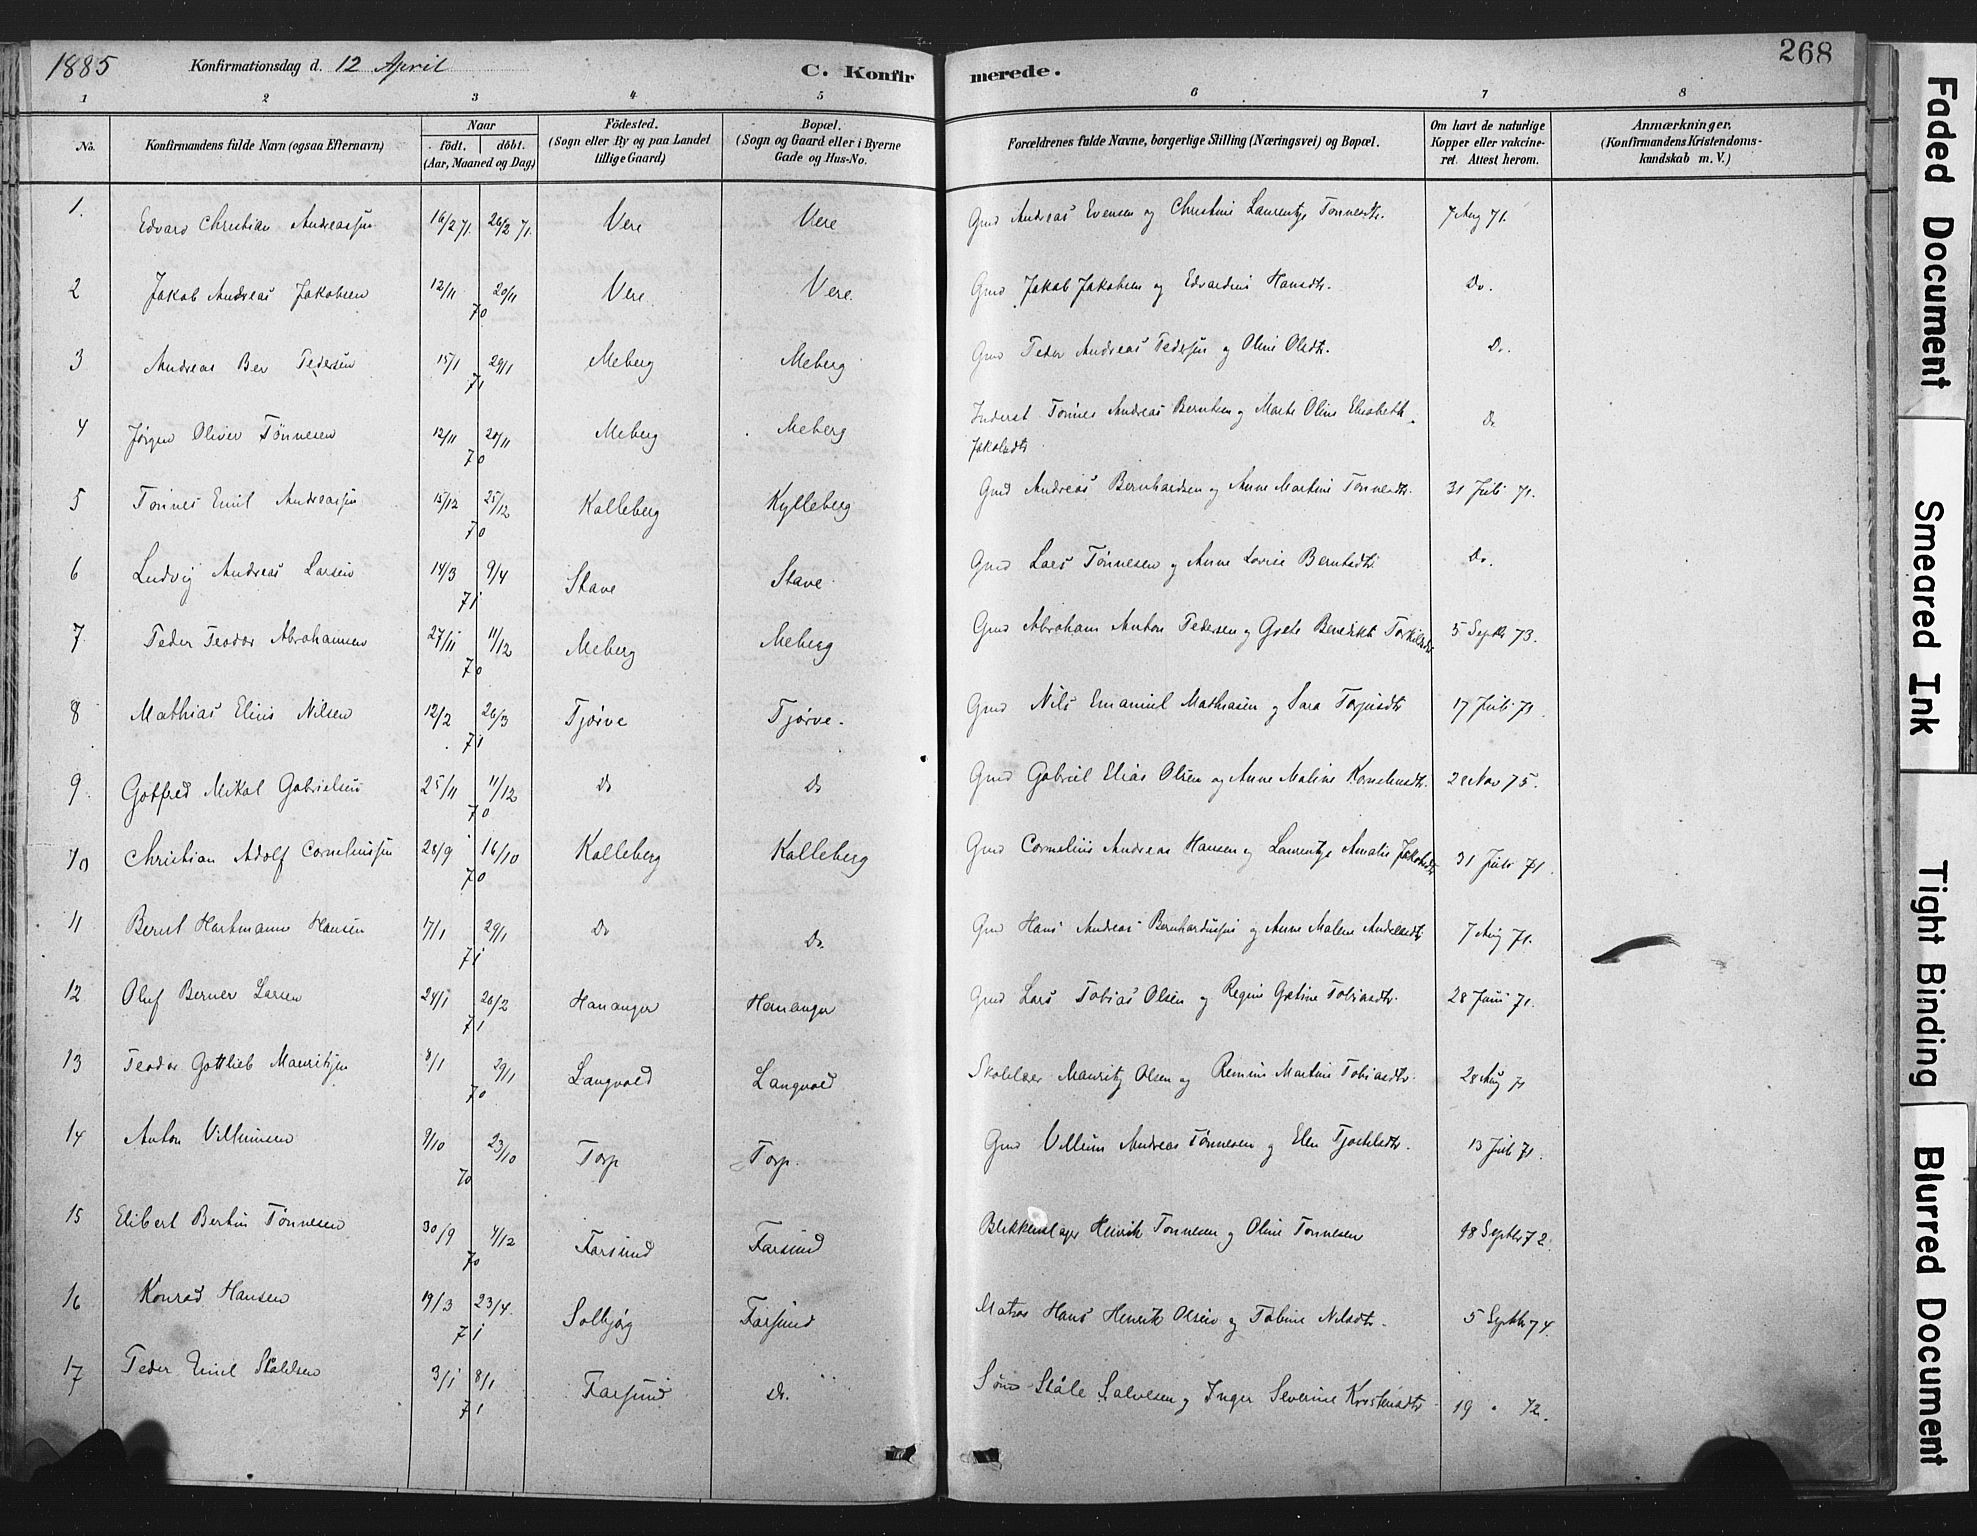 1885 Konfirmationsdag d. 12 April C. Konfirmerede. 268
1 2 3 4 5 6 7 8
No. Konfirmandens fulde Navn (ogsaa Efternavn) Naar født. døbt. (Aar, Maaned og Dag) Fødested. (Sogn eller By og paa Landet tillige Gaard) Bopæl. (Sogn og Gaard eller i Byerne Gade og Hus-No. Forældrenes fulde Navne, borgerlige Stilling (Næringsvei) og Bopæl. Om havt de naturlige Kopper eller vakcineret. Attest herom. Anmærkninger. (Konfirmandens Kristendomskundskab m. V.)
1. Edvard Christian Andreassen 16/2 71. 26/2 71. Vere Vere Gmd Andreas Evensen og Christine Laurentze Tønnesdtr. 7 Aug 71.
2 Jakob Andreas Jakobsen 12/11 20/11 70 Vere Vere Gmd Jakob Jakobsen og Edvardine Hansdtr. Do.
3 Andreas Ber Pedersen 15/1 29/1 71 Meberg Meberg Gmd Peder Andreas Pedersen og Oline Olsdtr. Do.
4 Jørgen Oliver Tønnesen 12/11 20/11 70 Meberg Meberg Inderst Tønnes Andreas Berntsen og Marte Oline Elisabeth
Jakobsdtr
5 Tønnes Emil Andreassen 15/12 25/12 70 Kalleberg Kylleberg Gmd Andreas Bernhardsen og Anne Martine Tønnesdtr. 31 Juli 71.
6 Ludvig Andreas Larsen 14/3 9/4 71 Stave Stave Gmd Lars Tønnesen og Anne Lovise Berntsdtr Do.
7 Peder Teodor Abrahamsen 27/11 11/12 70 Meberg Meberg Gmd Abraham Anton Pedersen og Grete Benedikte Torkildsdtr 5 Septb 73.
8 Mathias Elius Nilsen 12/2 26/3 71 Tjørve Tjørve. Gmd Nils Emanuel Mathiasen og Sara Torjusdtr 17 Juli 71.
9. Gotfred Mikal Gabrielsen 25/11 11/12 70 Do Do Gmd Gabriel Elias Olsen og Anne Malene Korneliusdtr. 28 Nov 75.
10 Christian Adolf Corneliussen 28/9 16/10 70 Kalleberg Kalleberg Gmd Cornelius Andreas Hansen og Laurentze Amalie Jakobsdtr 31 Juli 71.
11 Bernt Hartmann Hansen 17/1 29/1 71 Do Do. Gmd Hans Andreas Bernhardussen og Anne Malene 7 Aug 71.
12 Oluf Berner Larsen 24/1 26/2 71 Hananger Hananger Gmd Lars Tobias Olsen og Regine Gretine Tobiasdtr. 28 Juni 71.
13 Teodor Gottlieb Mauritzen 8/1 29/1 70 Langvold Langvold Mauritz Olsen og Martine Tobiasdtr. 28 Aug 71
14 Anton Villumsen 9/10 23/10 70 Torp Torp. Gmd Villum Andreas Tønnesen og Elen 13 Juli 71.
15 Elibert Bertin Tønnesen 30/9 4/12 70 Farsund Farsund Blikkenslager Henrik Tønnesen og Oline Tønnesen 18 Septbr 72.
16 Konrad Hansen 19/3 23/4. 71 Solbjørg Farsund Matros Hans Henrik Olsen og Tobine Nilsdtr. 5 Septb 74.
17 Peder Emil Ståldsen 3/1 8/1 71 Farsund Do. Sømd Ståle Salvesen og Inger Severine Kristensdtr 19 " 72.
Faded Document
Smeared Ink
Tight Binding
Blurred Document